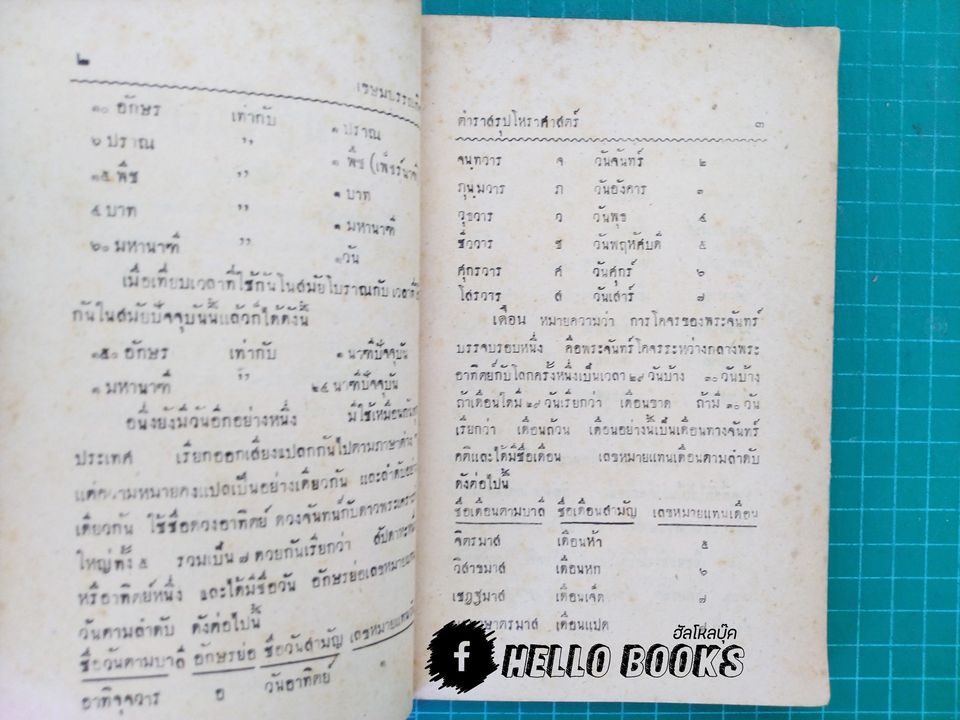 ๒
เขษมบรรณกิจ
๑๐ อักษร เท่ากับ ๑ ปราณ
๖ ปราณ ,, ๑ พืช (เพ็ชร์นาที
๑๕ พืช ,, ๑ บาท
๔ บาท ,, ๑ มหานาฑี
๖๐ มหานาฑี ,, ๑วัน
เมื่อเทียบเวลาที่ใช้กันในสมัยโบราณกับ เวลาที่
กันในสมัยปัจจุบันนี้แล้วก็ได้ดังนี้
๑๕๐ อักษร เท่ากับ ๑ นาฑีปัจจุบัน
๑ มหานาฑี ,, ๒๔ นาฑีปัจจุบัน
อนึ่งยังมีวันอีกอย่างหนึ่ง มีใช้เหมือนกัน
ประเทศ เรียกออกเสียงแปลกกันไปตามภาษาต่าง
แต่ความหมายคงแปลเป็นอย่างเดียวกัน และลำดับอย่าง
เดียวกัน ใช้ชื่อดวงอาทิตย์ ดวงจันทน์กับดาวพระเคราะห์
ใหญ่ทั้ง ๕ รวมเป็น ๗ ด้วยกันเรียกว่า สัปดาหะ
หรืออาทิตย์หนึ่ง และได้มีชื่อวัน อักษรย่อเลขหมายแทน
วันตามลำดับ ดังต่อไปนี้
ชื่อวันตามบาลี อักษรย่อ ชื่อวันสามัญ เลขหมายแทน
อาทิจฺจวาร อ วันอาทิตย์ ๑
ตำราสรุปโหราศาสตร์ ๓
จนฺทวาร จ วันจันทร์ ๒
ภุมฺมวาร ภ วันอังคาร ๓
วุธวาร ว วันพุธ ๔
ชิววาร ช วันพฤหัศบดี ๕
ศุกรวาร ศ วันศุกร์ ๖
โสรวาร ส วันเสาร์ ๗
เดือน หมายความว่า การโคจรของพระจันทร์
บรรจบรอบหนึ่ง คือพระจันทร์โคจรระหว่างกลางพระ
อาทิตย์กับโลกครั้งหนึ่งเป็นเวลา ๒๙ วันบ้าง ๓๐ วันบ้าง
ถ้าเดือนใดมี ๒๙ วันเรียกว่า เดือนขาด ถ้ามี ๓๐ วัน
เรียกว่า เดือนถ้วน เดือนอย่างนี้เป็นเดือนทางจันทร์
คติและได้มีชื่อเดือน เลขหมายแทนเดือนตามลำดับ
ดังต่อไปนี้
ชื่อเดือนตามบาลี ชื่อเดือนสามัญ เลขหมายแทนเดือน
จิตรมาส เดือนห้า ๕
วิสาขมาส เดือนหก ๖
เชฏฐมาส เดือนเจ็ด ๗
เดือนแปด ๘
ฮัลโหลบุ๊ค
f HELLO BOOKS